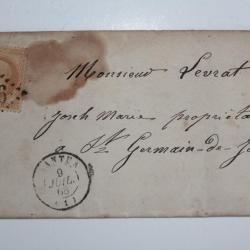 Monsieur Levrat
Joseh Marie propriéta
à St Germain-de-J
NANTUA
9
JUIL.
68
(1)